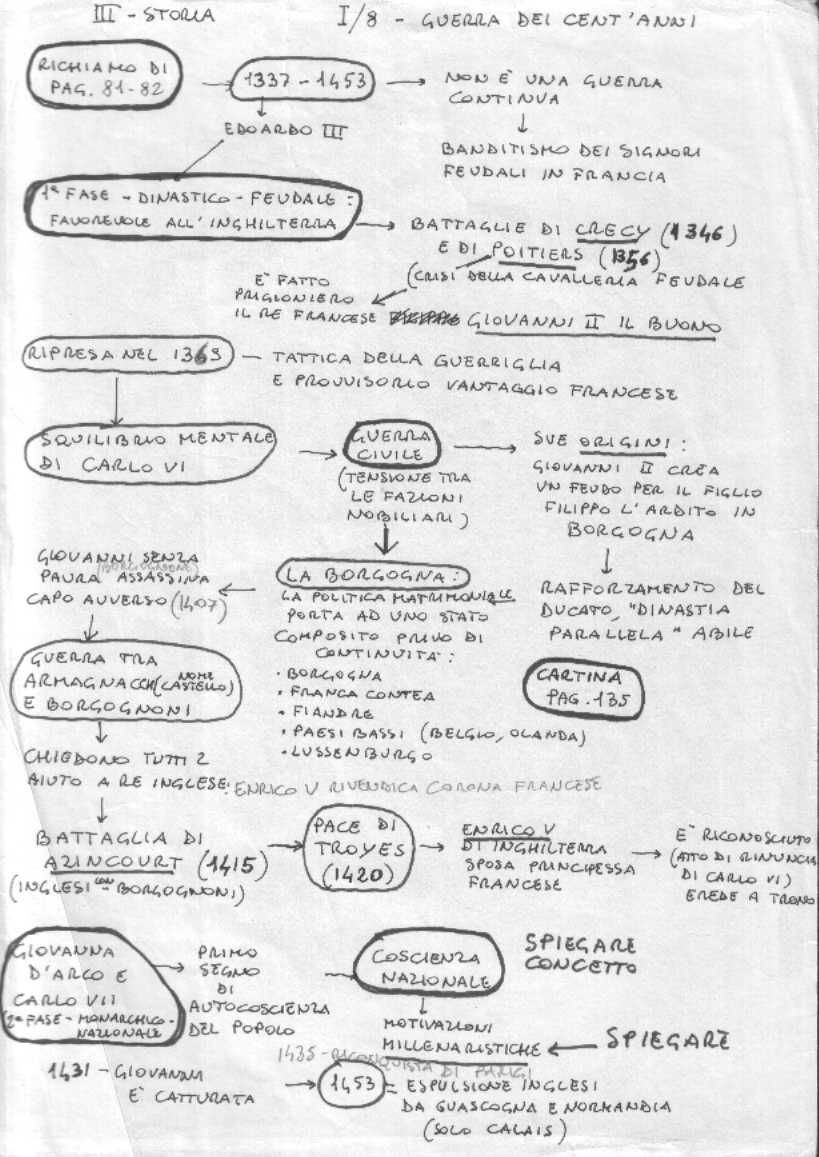 III - STORIA
I/8 - GUERRA DEI CENT'ANNI
RICHIAMO DI
PAG. 81-82
1337 - 1453
NON È UNA GUERRA
CONTINUA
EDOARDO III
BANDITISMO DEI SIGNORI
FEUDALI IN FRANCIA
1ª FASE - DINASTICO - FEUDALE :
FAVOREVOLE ALL'INGHILTERRA
BATTAGLIE DI CRECY (1346)
E DI POITIERS (1356)
(CRISI DELLA CAVALLERIA FEUDALE
È FATTO
PRIGIONIERO
IL RE FRANCESE GIOVANNI II IL BUONO
RIPRESA NEL 1369
- TATTICA DELLA GUERRIGLIA
E PROVVISORIO VANTAGGIO FRANCESE
SQUILIBRIO MENTALE
DI CARLO VI
GUERRA
CIVILE
(TENSIONE TRA
LE FAZIONI
NOBILIARI)
SUE ORIGINI :
GIOVANNI II CREA
UN FEUDO PER IL FIGLIO
FILIPPO L'ARDITO IN
BORGOGNA
RAFFORZAMENTO DEL
DUCATO, "DINASTIA
PARALLELA" ABILE
LA BORGOGNA :
LA POLITICA MATRIMONIALE
PORTA AD UNO STATO
COMPOSITO PRIVO DI
CONTINUITÀ :
· BORGOGNA
· FRANCA CONTEA
· FIANDRE
· PAESI BASSI (BELGIO, OLANDA)
· LUSSENBURGO
GIOVANNI SENZA
(BORGOGNONE)
PAURA ASSASSINA
CAPO AVVERSO (1407)
CARTINA
PAG. 135
GUERRA TRA
ARMAGNACCHI (NOME CASTELLO)
E BORGOGNONI
CHIEDONO TUTTI 2
AIUTO A RE INGLESE: ENRICO V RIVENDICA CORONA FRANCESE
BATTAGLIA DI
AZINCOURT (1415)
(INGLESI CON BORGOGNONI)
PACE DI
TROYES
(1420)
ENRICO V
DI INGHILTERRA
SPOSA PRINCIPESSA
FRANCESE
È RICONOSCIUTO
(ATTO DI RINUNCIA
DI CARLO VI)
EREDE A TRONO
GIOVANNA
D'ARCO E
CARLO VII
2ª FASE - MONARCHICO -
NAZIONALE
PRIMO
SEGNO
DI
AUTOCOSCIENZA
DEL POPOLO
COSCIENZA
NAZIONALE
SPIEGARE
CONCETTO
MOTIVAZIONI
MILLENARISTICHE
SPIEGARE
1435 - RICONQUISTA DI PARIGI
1431 - GIOVANNA
È CATTURATA
1453
- ESPULSIONE INGLESI
DA GUASCOGNA E NORMANDIA
(SOLO CALAIS)